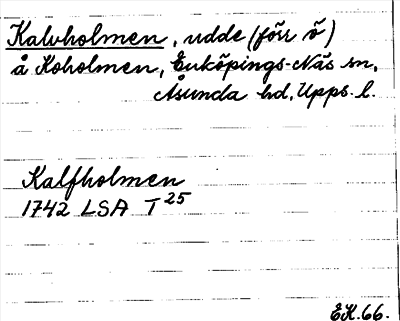 Kalvholmen, udde (förr ö)
å Koholmen, Enköpings-Näs sn,
Åsunda hd, Upps. l.
Kalfholmen
1742 LSA T 25
EK.66.